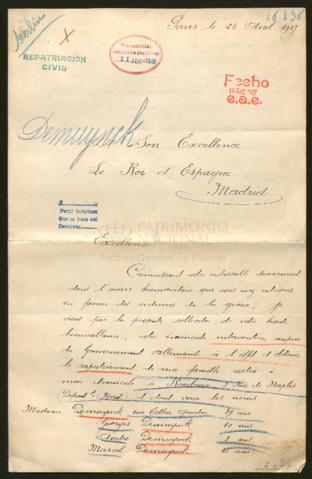 Berlin
X
REPATRIACIÓN
CIVIL
le 26 Avril 1917
Fecho
e.a.e.
Demuynck
Son Excellence
Le Roi d'Espagne
Madrid
Pedir informes
Devolver
PATRIMONIO
NACIONAL
Archivo General de Palacio
Excellence
Connaissant votre inlassable dévouement
dans l'œuvre humanitaire que vous avez entreprise
en faveur des victimes de la guerre, je
viens par la présente solliciter de votre haute
bienveillance, votre éminente intervention auprès
du Gouvernement allemand à l'effet d'obtenir
le rapatriement de ma famille restée à
mon domicile à Roubaix, Rue de Naples
Départ. Nord, et dont voici les noms
Madame Demuynck née Esther 39 ans
Georges Demuynck 10 ans
Demuynck ans
Marcel Demuynck ans